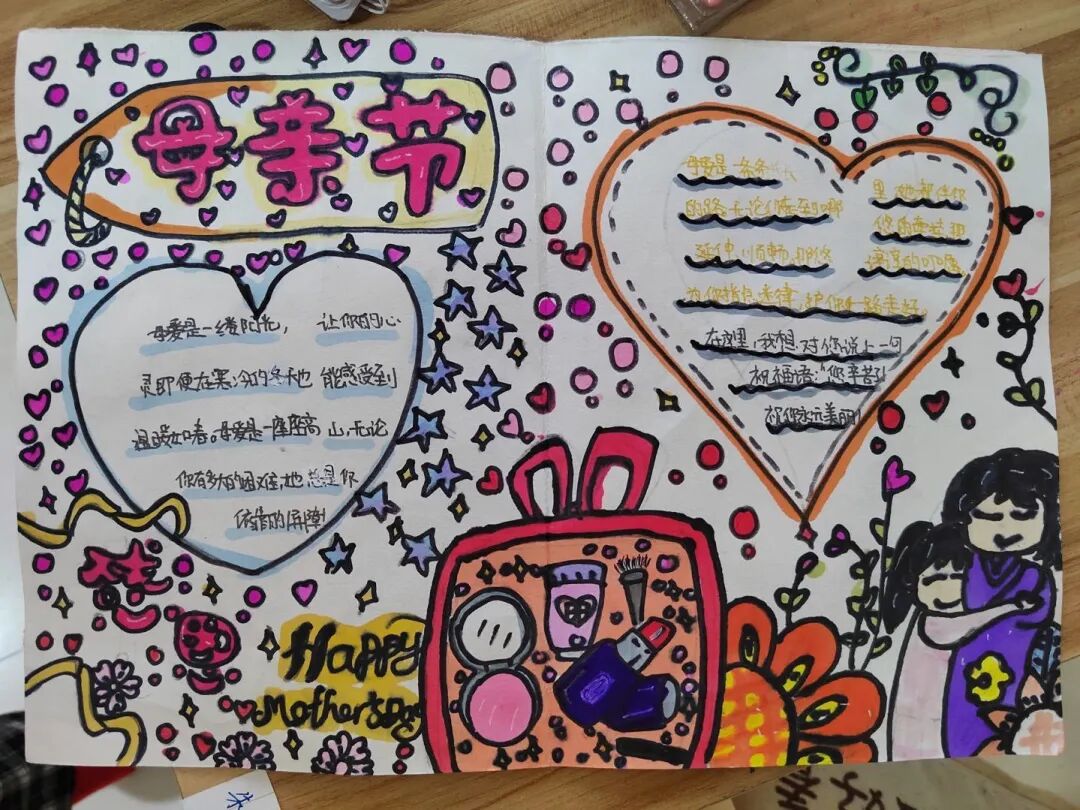 母亲节
母爱是一缕阳光，让你的心
灵即便在寒冷的冬天也能感受到
温暖如春。母爱是一座高山，无论
你有多大的困难，她总是你
依靠的屏障！
Happy
Mother's Day
母爱是一条条
的路，无论你走到哪里，她都伴你
延伸、顺畅，
为你指点迷津，护你一路走好。
在这里，我想对您说上一句
祝福语："您辛苦了
祝你永远美丽！